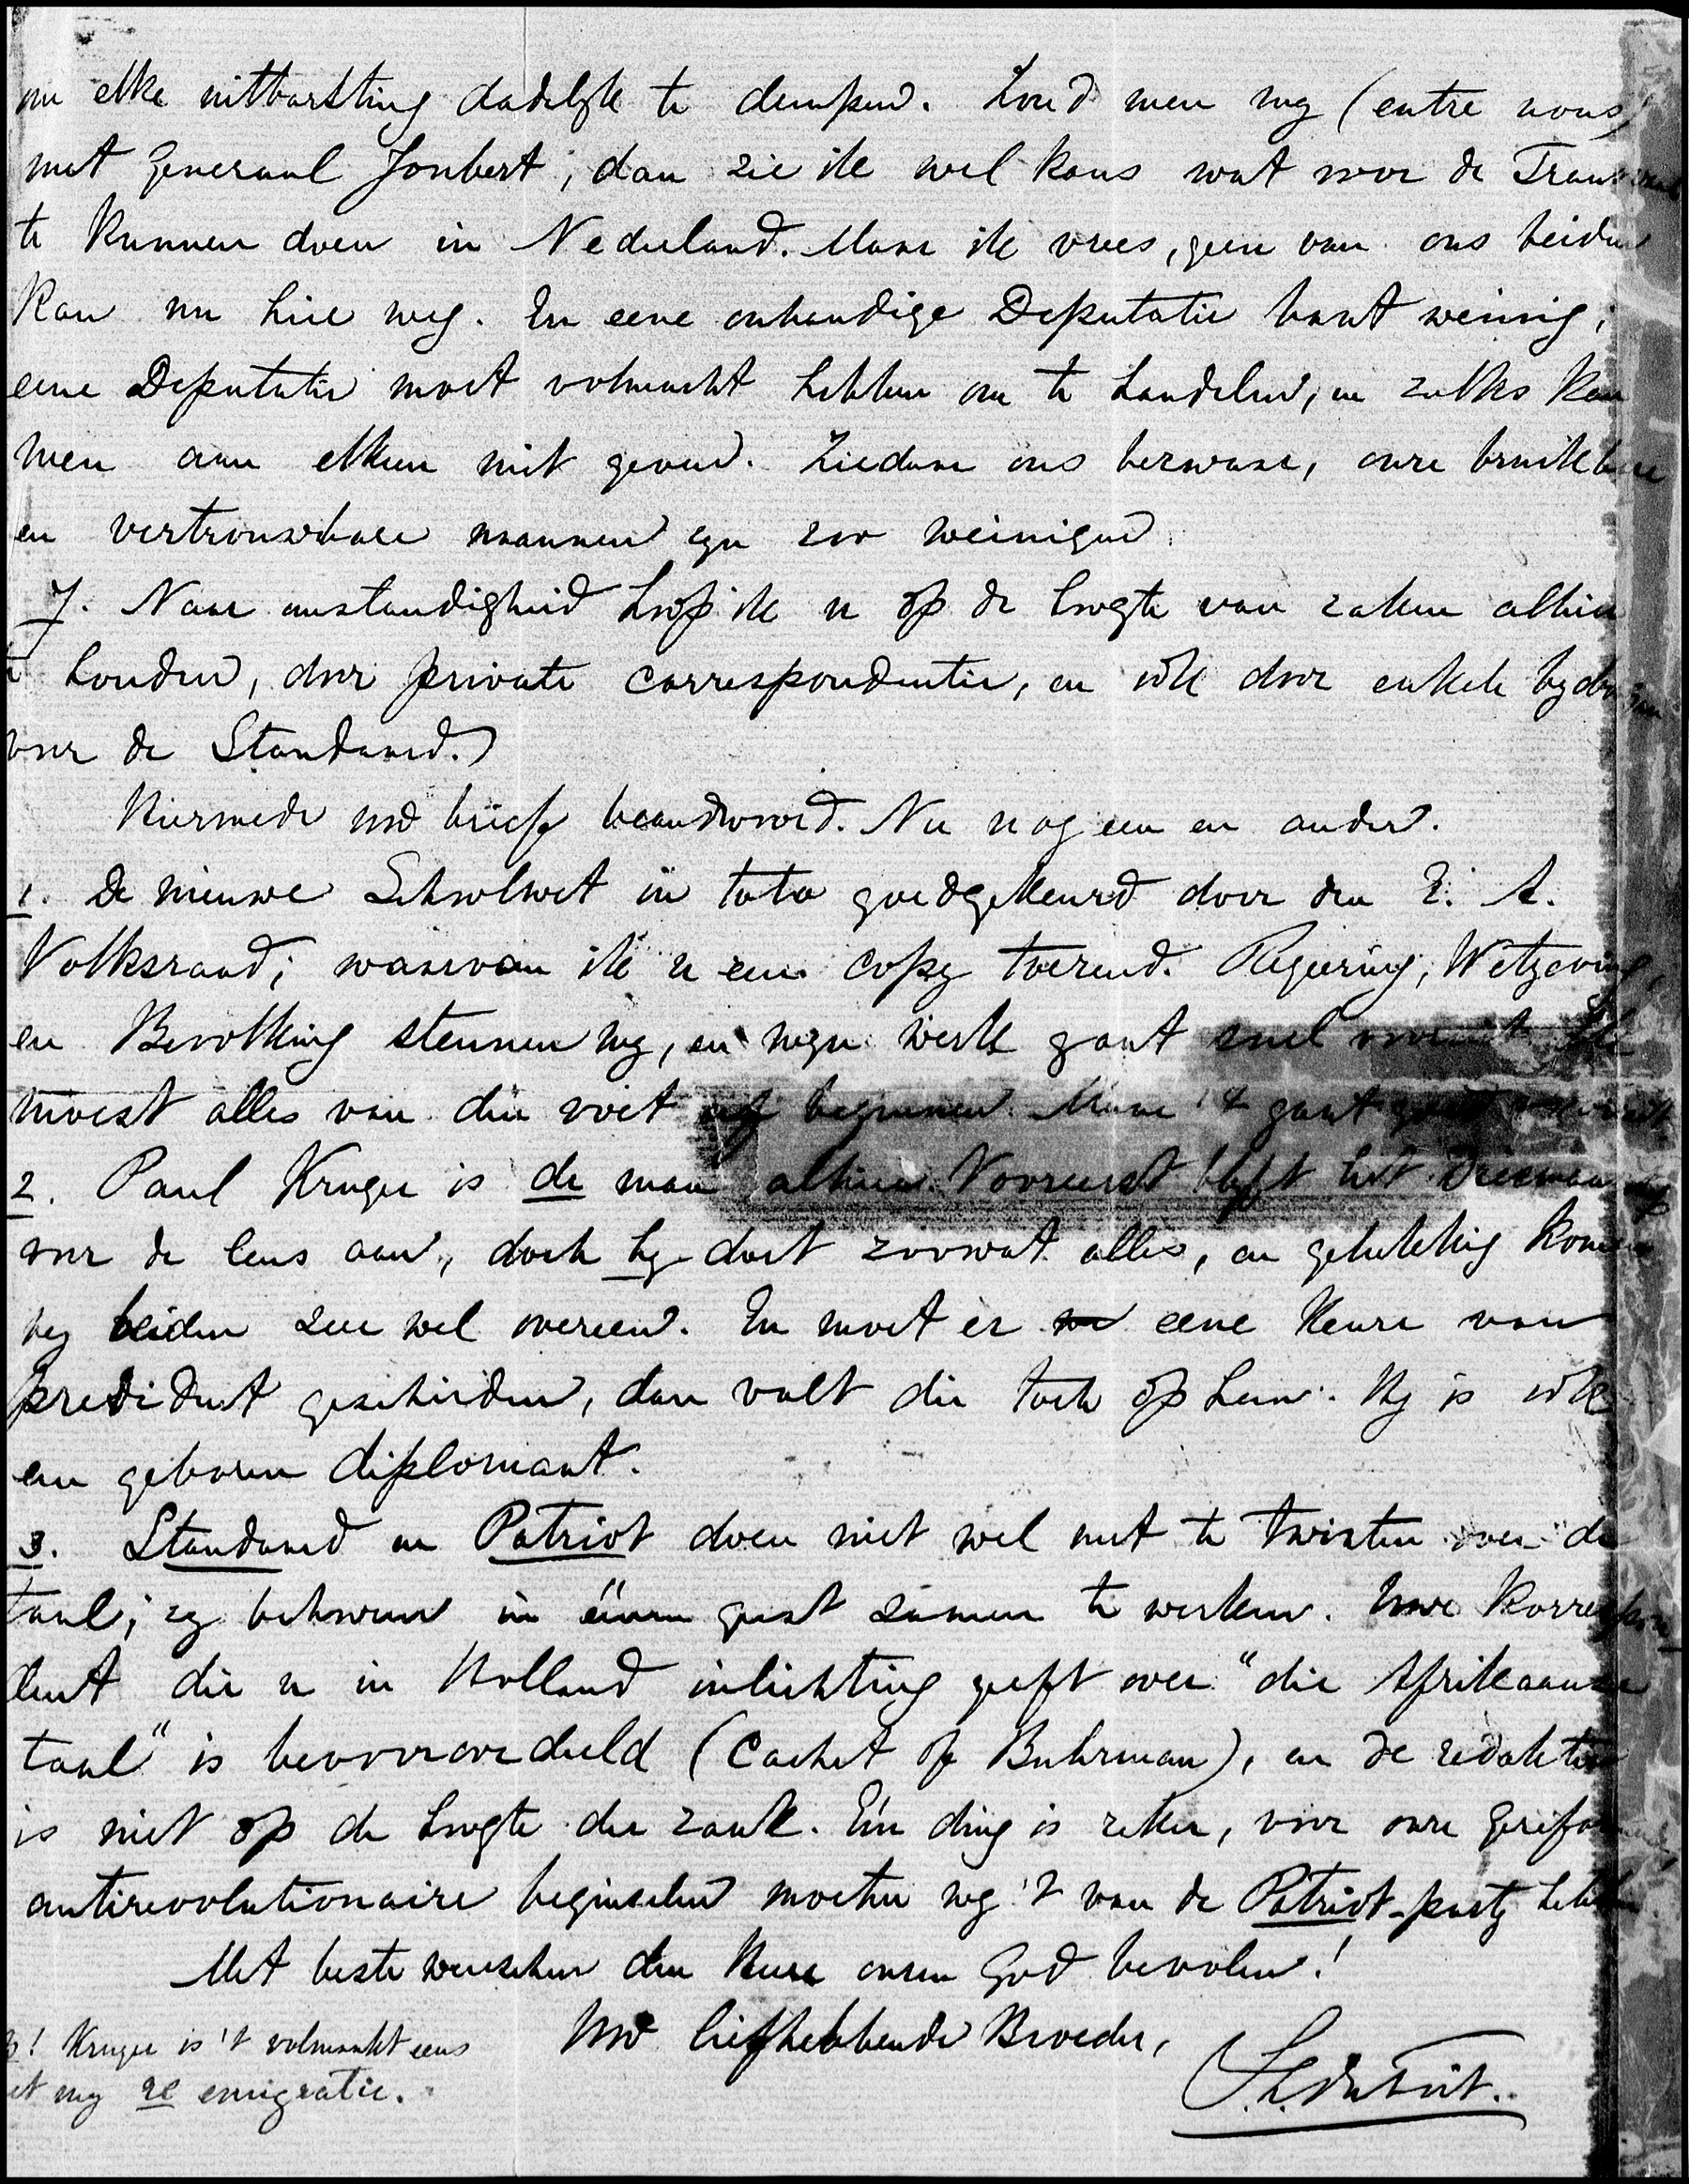 om elke uitbarsting dadelyk te dempen. Zond men my (entre nous)
met Generaal Joubert, dan zie ik wel kans wat voor de Transvaal
te kunnen doen in Nederland. Maar ik vrees, geen van ons beiden
kan nu hier weg. En eene onhandige Deputatie baat weinig;
eene Deputatie moet volmacht hebben om te handelen, en zulks kan
men aan elkeen niet geven. Ziedaar ons bezwaar, onze bruikbare
en vertrouwbare mannen zyn zoo weinigen.
7. Naar omstandigheid hoop ik u op de hoogte van zaken alhier
te houden, door private correspondentie, en ook door enkele bydragen
voor de Standaard.
Hiermede uwd brief beandwoord. Nu nog een en ander.
1. De nieuwe Schoolwet in toto goedgekeurd door den E. A.
Volksraad; waarvan ik u een copy toezend. Regeering, Wetgeving,
en Bevolking steunen my, en myn werk gaat snel vooruit. Ik
moest alles van den voet af beginnen. Maar 't gaat goed
2. Paul Kruger is de man alhier. Vooreerst blyft het Driemanschap
voor de leus aan, doch hy doet zoowat alles, en gelukkig komen
wy beiden zeer wel overeen. En moet er eene keuze van
president geschieden, dan valt die toch op hem. Hy is ook
een geboren diplomaat.
3. Standaard en Patriot doen niet wel met te twisten over de
taal; zy behooren in éénen geest zamen te werken. Uwe Korrespon-
dent die u in Holland inlichting geeft over "die Afrikaanse
taal" is bevooroordeeld (Cachet of Buhrman), en de redaktie
is niet op de hoogte der zaak. Eén ding is zeker, voor onze Gereformeerde,
antirevolutionaire beginselen moeten wy 't van de Patriot-party hebben.
Met beste wenschen den Heere onzen God bevolen!
Uwd liefhebbende Broeder,
S. J. du Toit.
Kruger is 't volmaakt eens
met my re emigratie.